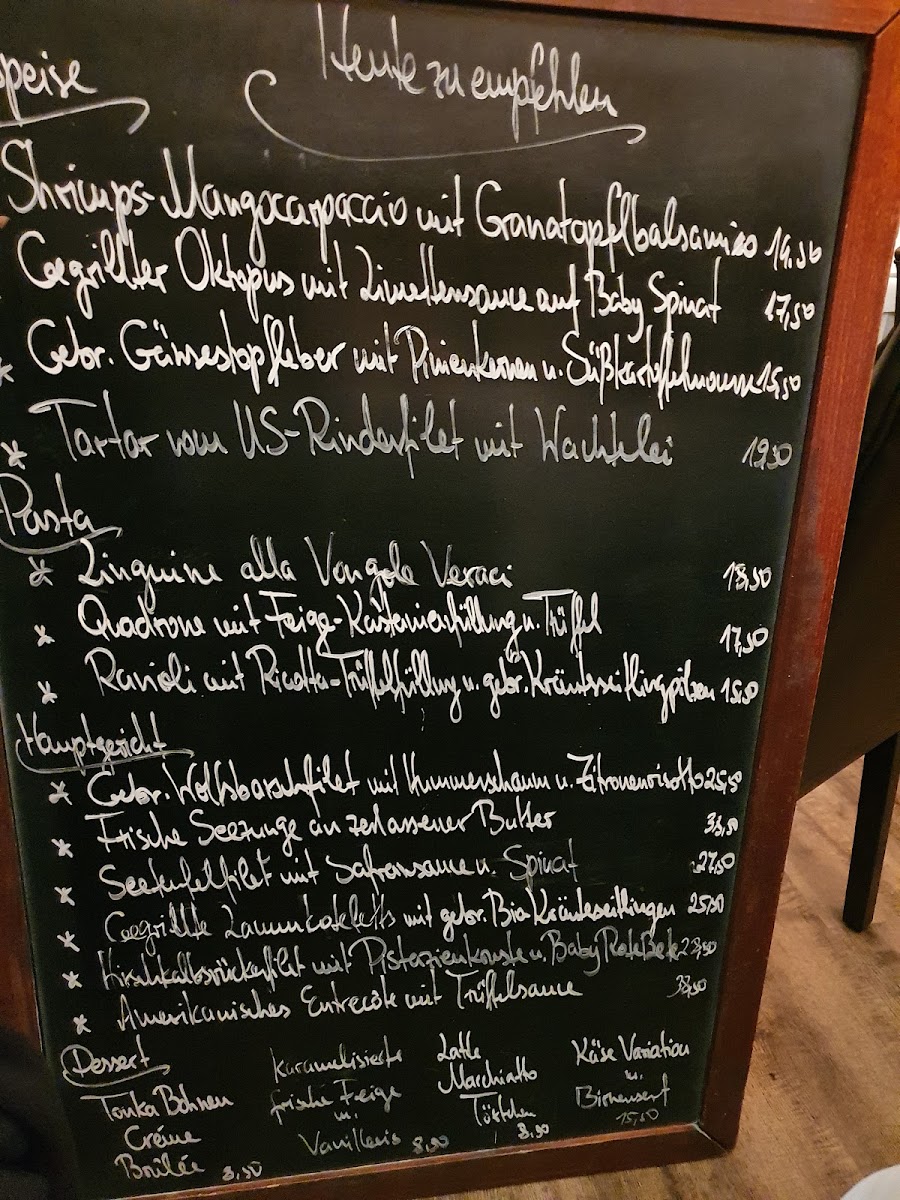 Heute zu empfehlen
speise
Shrimps-Mangocarpaccio mit Granatapfelbalsamico 14,50
Gegrillter Oktopus mit Limettensauce auf Baby Spinat 17,50
* Gebr. Gänsestopfleber mit Pinienkernen u. Süßkartoffelmousse 19,50
* Tartar vom US-Rinderfilet mit Wachtelei 19,50
Pasta
* Linguine alla Vongole Veraci 18,50
* Quadrone mit Feige-Kastanienfüllung u. Trüffel 17,50
* Ravioli mit Ricotta-Trüffelfüllung u. gebr. Kräuterseitlingpilzen 15,50
Hauptgericht
* Gebr. Wolfsbarschfilet mit Hummerschaum u. Zitronenrisotto 25,50
* Frische Seezunge an zerlassener Butter
* Seeteufelfilet mit Safransauce u. Spinat 27,50
* Gegrillte Lammkoteletts mit gebr. Bio Kräuterseitlingen 25,50
* Hirschkalbsrückenfilet mit Pistazienkruste u. Baby Rote Bete
* Amerikanisches Entrecôte mit Trüffelsauce
Dessert
Tonka Bohnen
Créme
Brûlée 8,50
Karamelisierte
frische Feige
m.
Vanilleeis 8,90
Latte
Macchiatto
Törtchen
8,90
Käse Variation
m.
Birnensenf
15,50